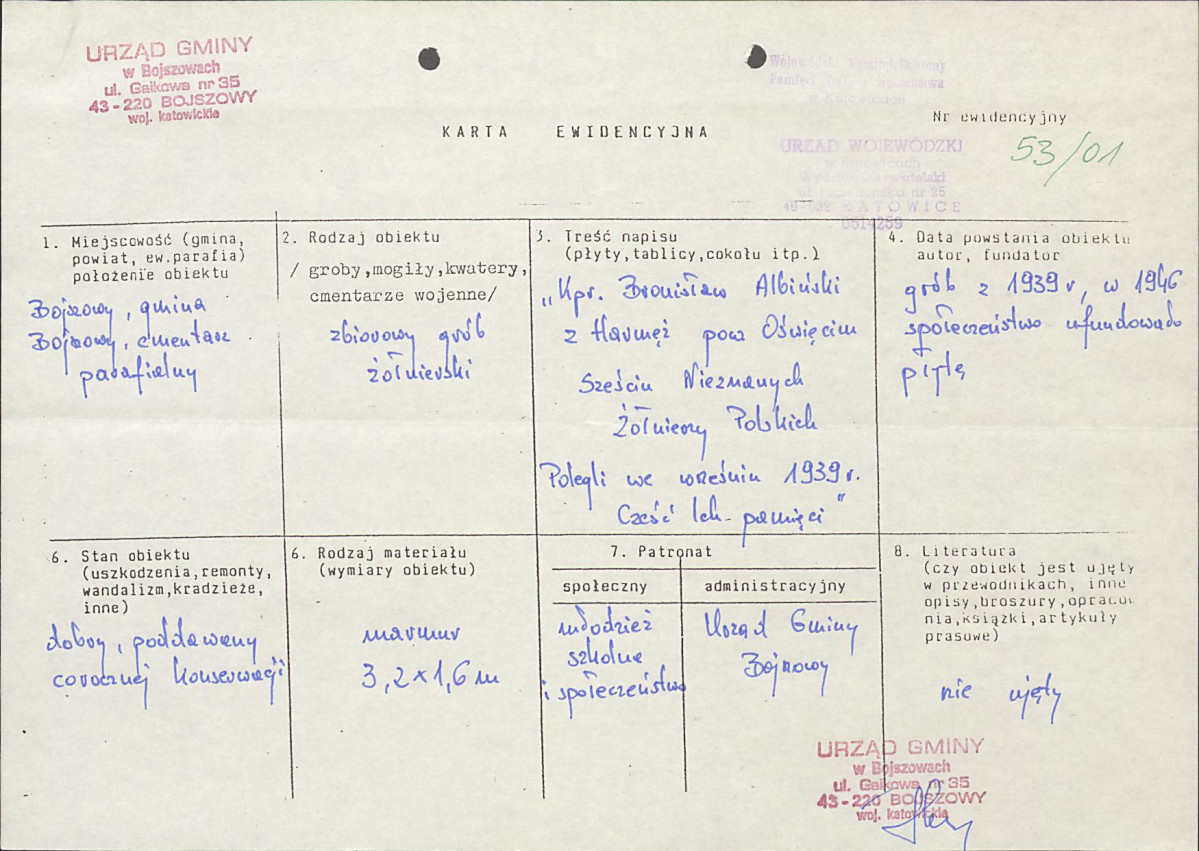 URZĄD GMINY
w Bojszowach
ul. Gaikowa nr 35
43-220 BOJSZOWY
woj. katowickie
KARTA EWIDENCYJNA
Nr ewidencyjny
53/01
URZĄD WOJEWÓDZKI
w Katowicach
nr 25
KATOWICE
0514259
1. Miejscowość (gmina,
powiat, ew.parafia)
położenie obiektu
Bojszowy, gmina
Bojszowy, cmentarz
parafialny
2. Rodzaj obiektu
/ groby,mogiły,kwatery,
cmentarze wojenne/
zbiorowy grób
żołnierski
3. Treść napisu
(płyty,tablicy,cokołu itp.)
„Kpr. Bronisław Albiński
z Harmęż pow Oświęcim
Sześciu Nieznanych
Żołnierzy Polskich
Polegli we wrześniu 1939 r.
Cześć Ich pamięci"
4. Data powstania obiektu
autor, fundator
grób z 1939 r, w 1946
społeczeństwo ufundowało
płytę
6. Stan obiektu
(uszkodzenia,remonty,
wandalizm,kradzieże,
inne)
dobry, poddawany
corocznej konserwacji
6. Rodzaj materiału
(wymiary obiektu)
marmur
3,2 x 1,6 m
7. Patronat
społeczny
administracyjny
młodzież
szkolna
i społeczeństwo
Urząd Gminy
Bojszowy
8. Literatura
(czy obiekt jest ujęty
w przewodnikach, inne
opisy,broszury,opracow
nia,książki,artykuły
prasowe)
nie ujęty
URZĄD GMINY
w Bojszowach
ul. Gaikowa nr 35
43-220 BOJSZOWY
woj. katowickie